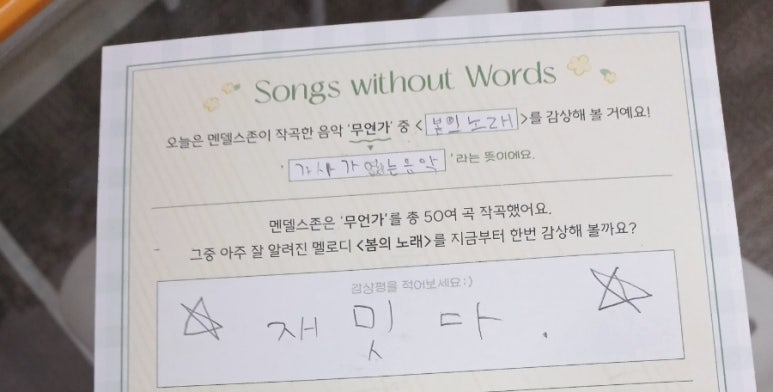 Songs without Words
오늘은 멘델스존이 작곡한 음악 '무언가' 중 <봄의 노래>를 감상해 볼 거예요!
'가사가 없는 음악'라는 뜻이에요.
멘델스존은 '무언가'를 총 50여 곡 작곡했어요.
그중 아주 잘 알려진 멜로디 <봄의 노래>를 지금부터 한번 감상해 볼까요?
감상평을 적어보세요:)
재밋다.